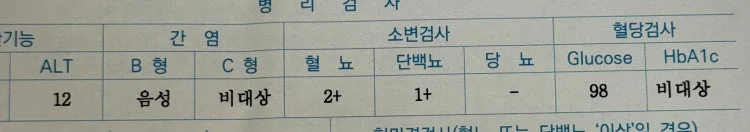 병 리 검 사
기능 간 염 소변검사 혈당검사
ALT B 형 C 형 혈 뇨 단백뇨 당 뇨 Glucose HbA1c
12 음성 비대상 2+ 1+ − 98 비대상
현미경검사(혈뇨 또는 단백뇨 '이상'인 경우)